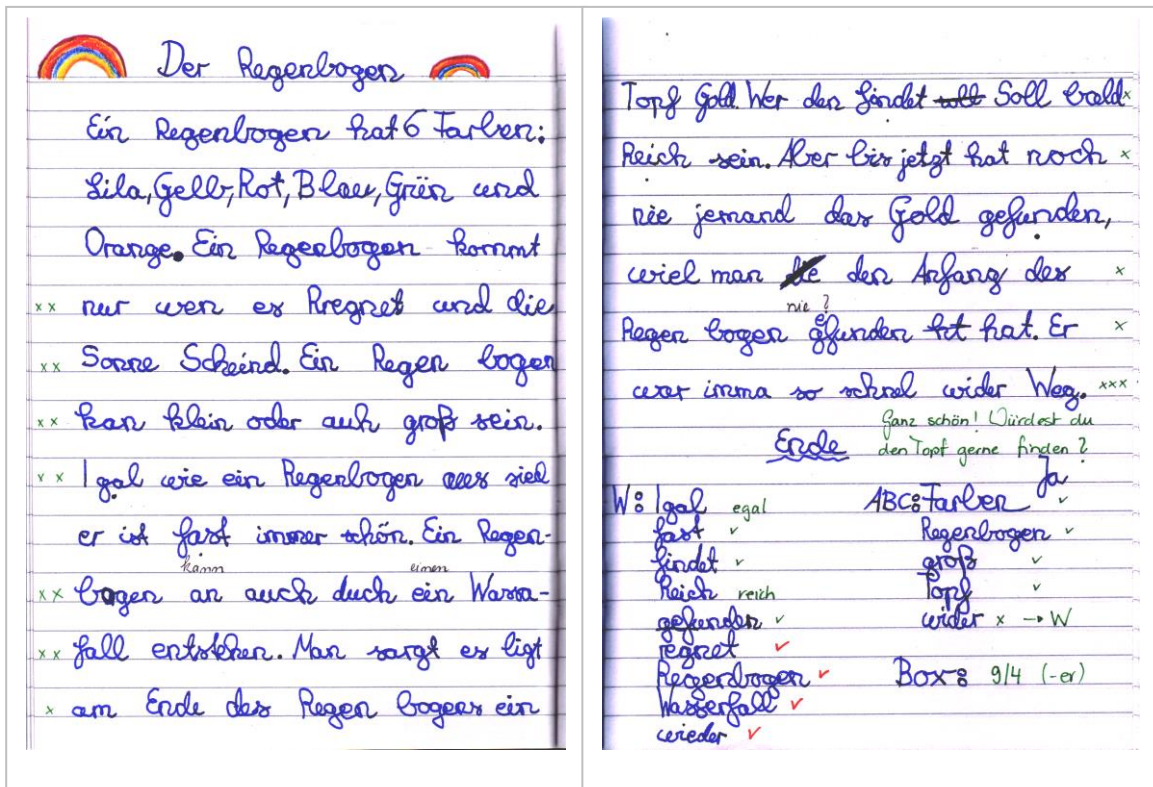 Der Regenbogen
Ein Regenbogen hat 6 Farben:
Lila, Gelb, Rot, Blau, Grün und
Orange. Ein Regenbogen kommt
x x nur wen es Rregnet und die
x x Sonne Scheind. Ein Regen bogen
x x kan klein oder auh groß sein.
x x Igal wie ein Regenbogen aus sied
er ist fast immer schön. Ein Regen-
kann einen
x x bogen an auch duch ein Wassa-
x x fall entstehen. Man sargt es ligt
x am Ende des Regen bogens ein
Topf Gold. Wer den findet soll Soll bald x
Reich sein. Aber bis jetzt hat noch x
nie jemand das Gold gefunden,
wiel man die den Anfang des x
nie? e
Regen bogen gfunden ht hat. Er x
war imma so schnel wider Weg. xxx
Ganz schön! Würdest du
Ende den Topf gerne finden?
Ja
W: Igal egal
fast ✓
findet ✓
Reich reich
gefunden ✓
regnet ✓
Regenbogen ✓
Wasserfall ✓
wieder ✓
ABC: Farben ✓
Regenbogen ✓
groß ✓
Topf ✓
wider x → W
Box: 9/4 (-er)